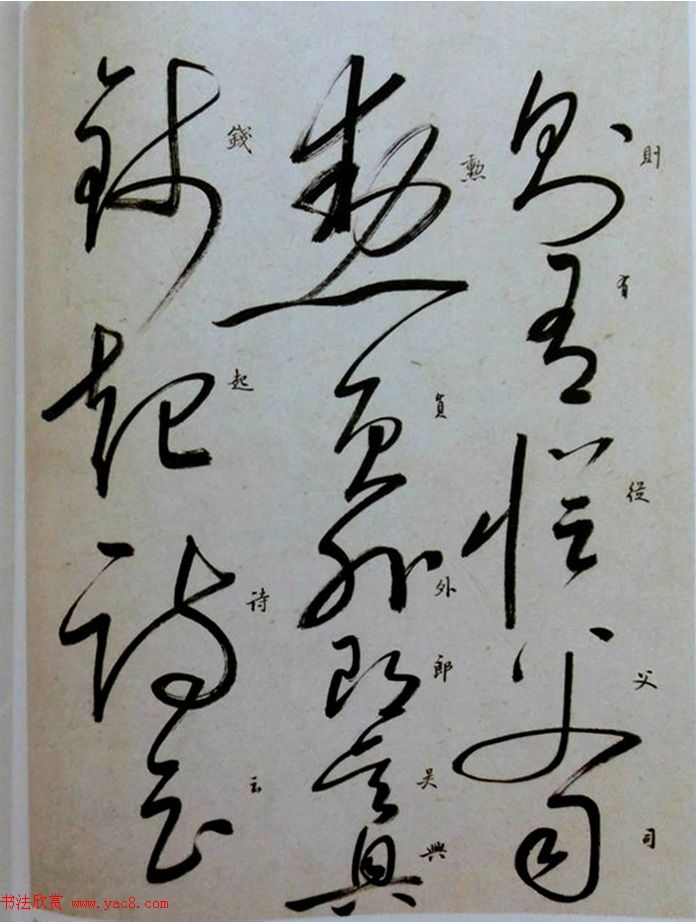 則有從父司
勲員外郎吴興
錢起诗云
书法欣赏 www.yac8.com